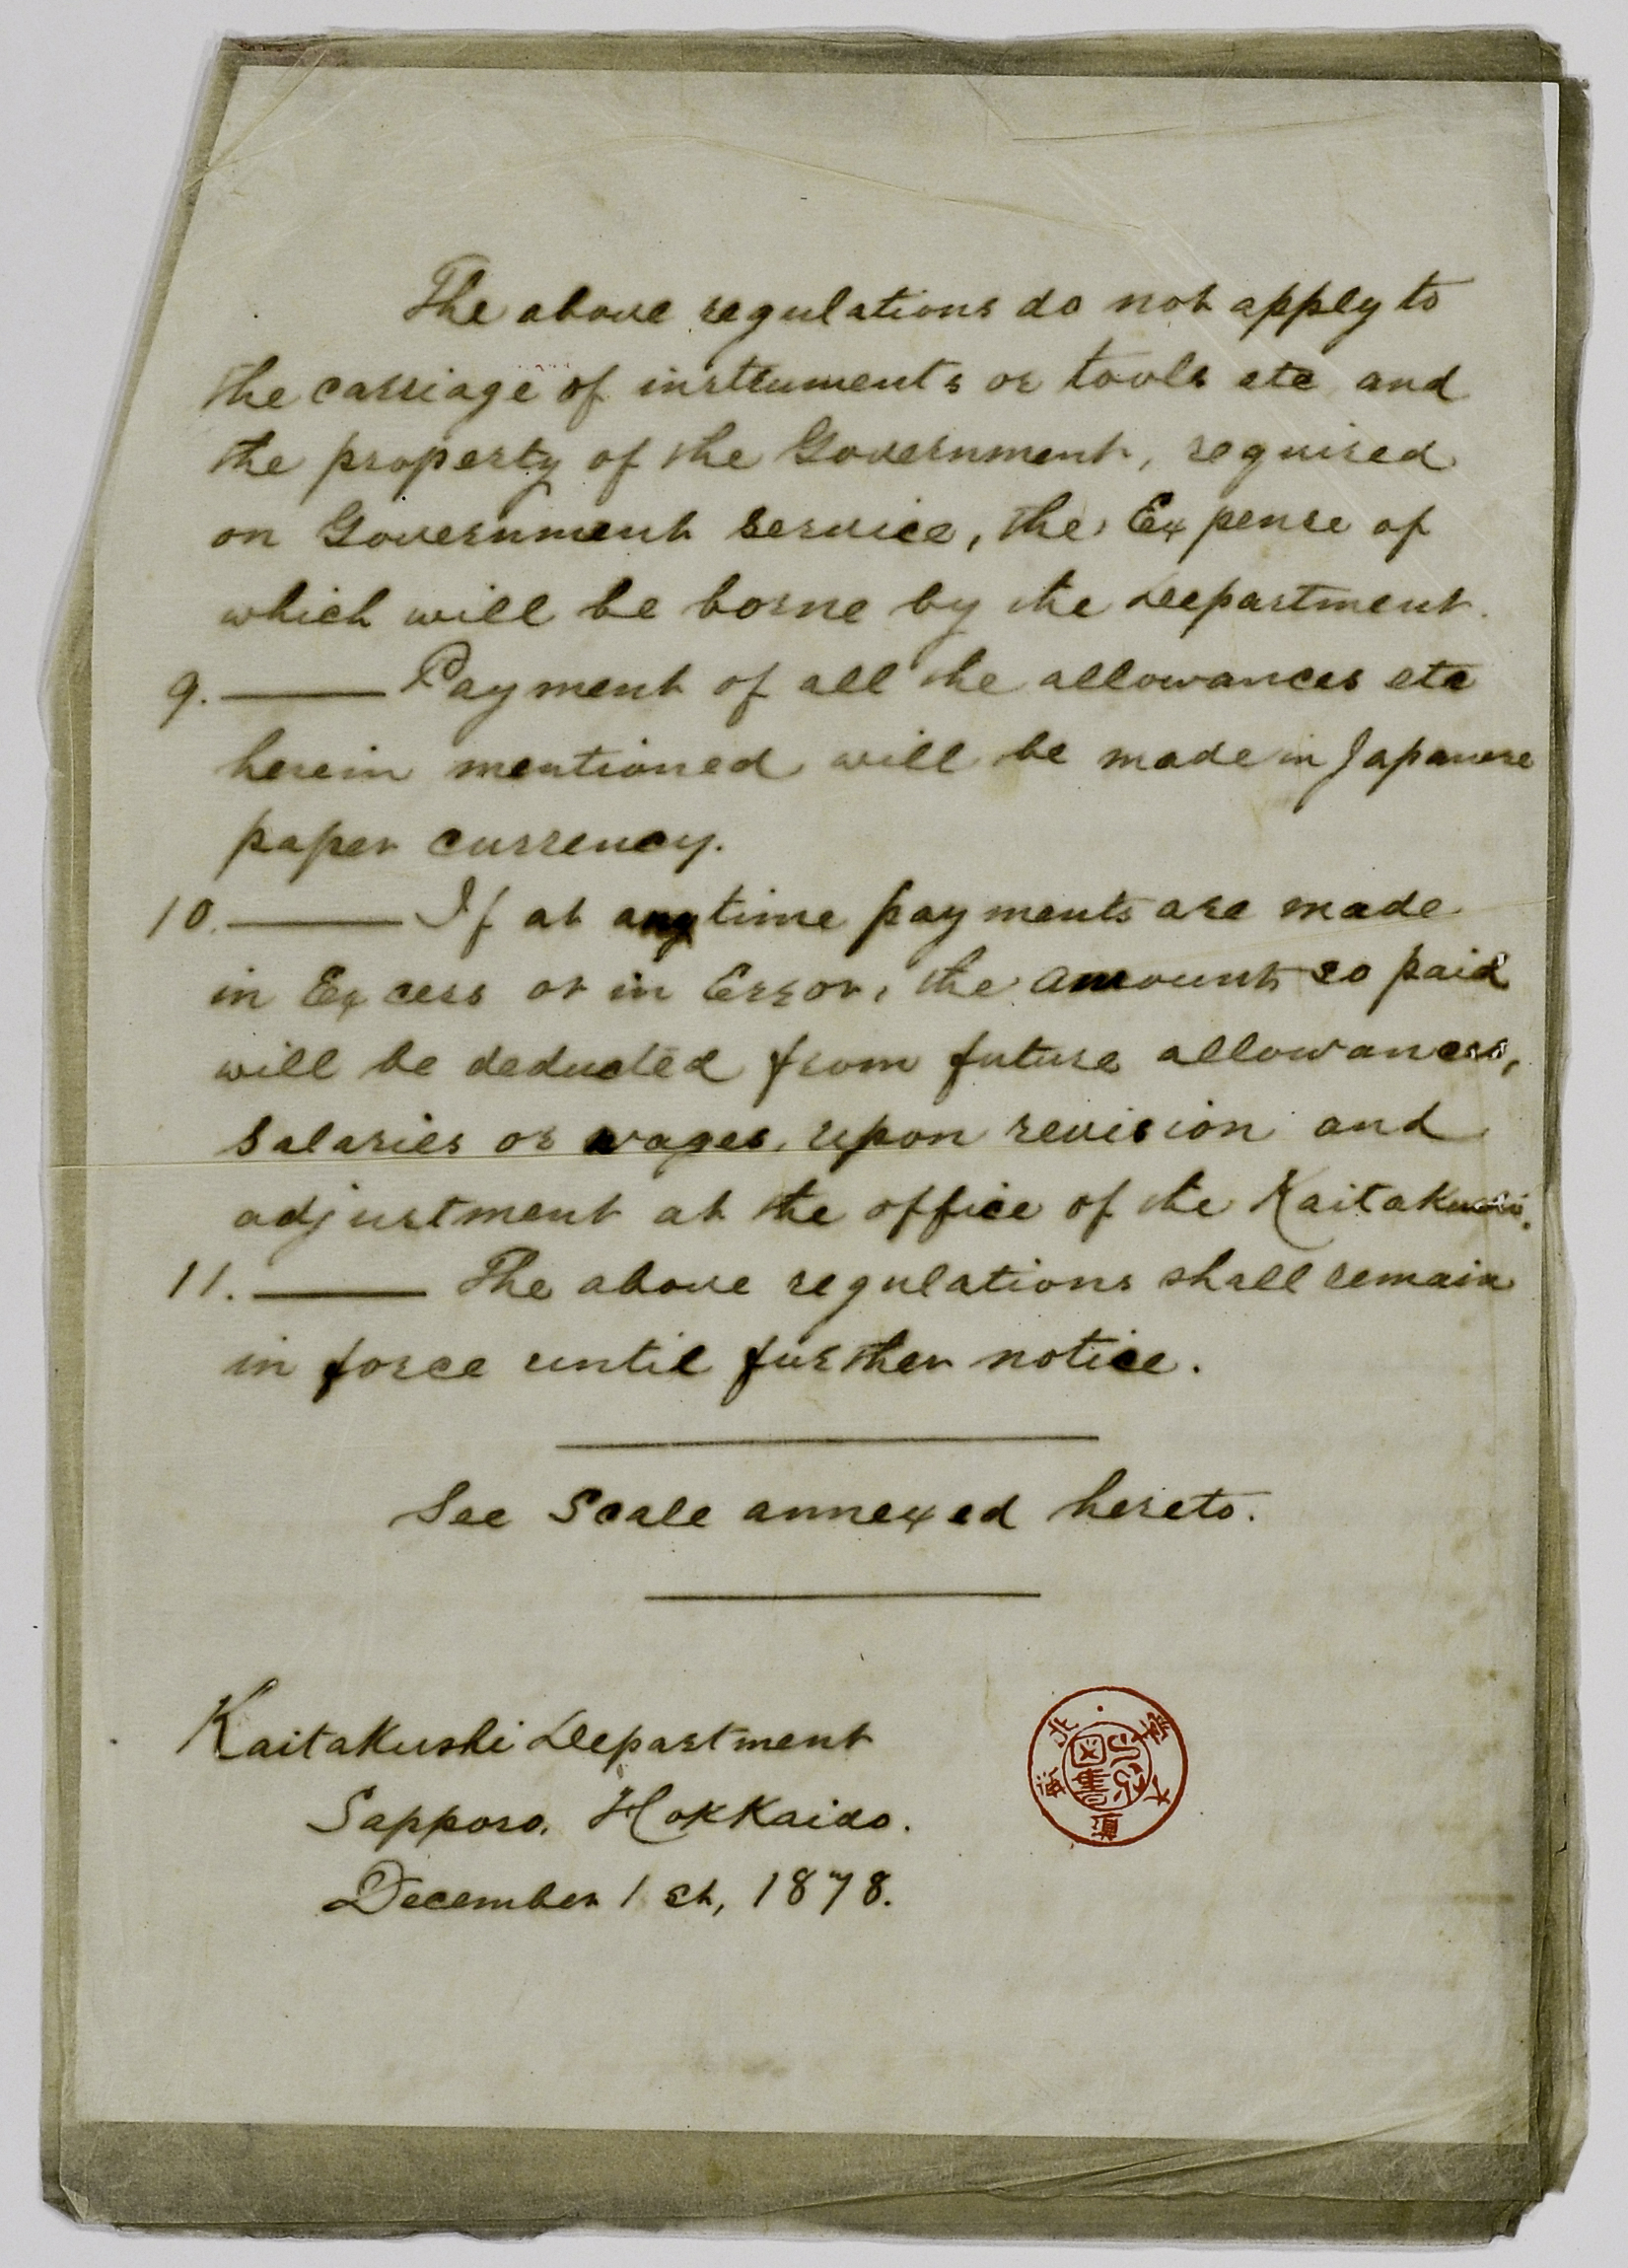 The above regulations do not apply to
the carriage of instruments or tools etc and
the property of the Government, required
on Government service, the Expense of
which will be borne by the Department.
9. ——— Payment of all the allowances etc
herein mentioned will be made in Japanese
paper currency.
10. ——— If at any time payments are made
in Excess or in Error, the amounts so paid
will be deducted from future allowances,
Salaries or wages, upon revision and
adjustment at the office of the Kaitakushi.
11. ——— The above regulations shall remain
in force until further notice.
See Scale annexed hereto.
Kaitakushi Department
Sapporo, Hokkaido.
December 1st, 1878.
北海道大學
図書